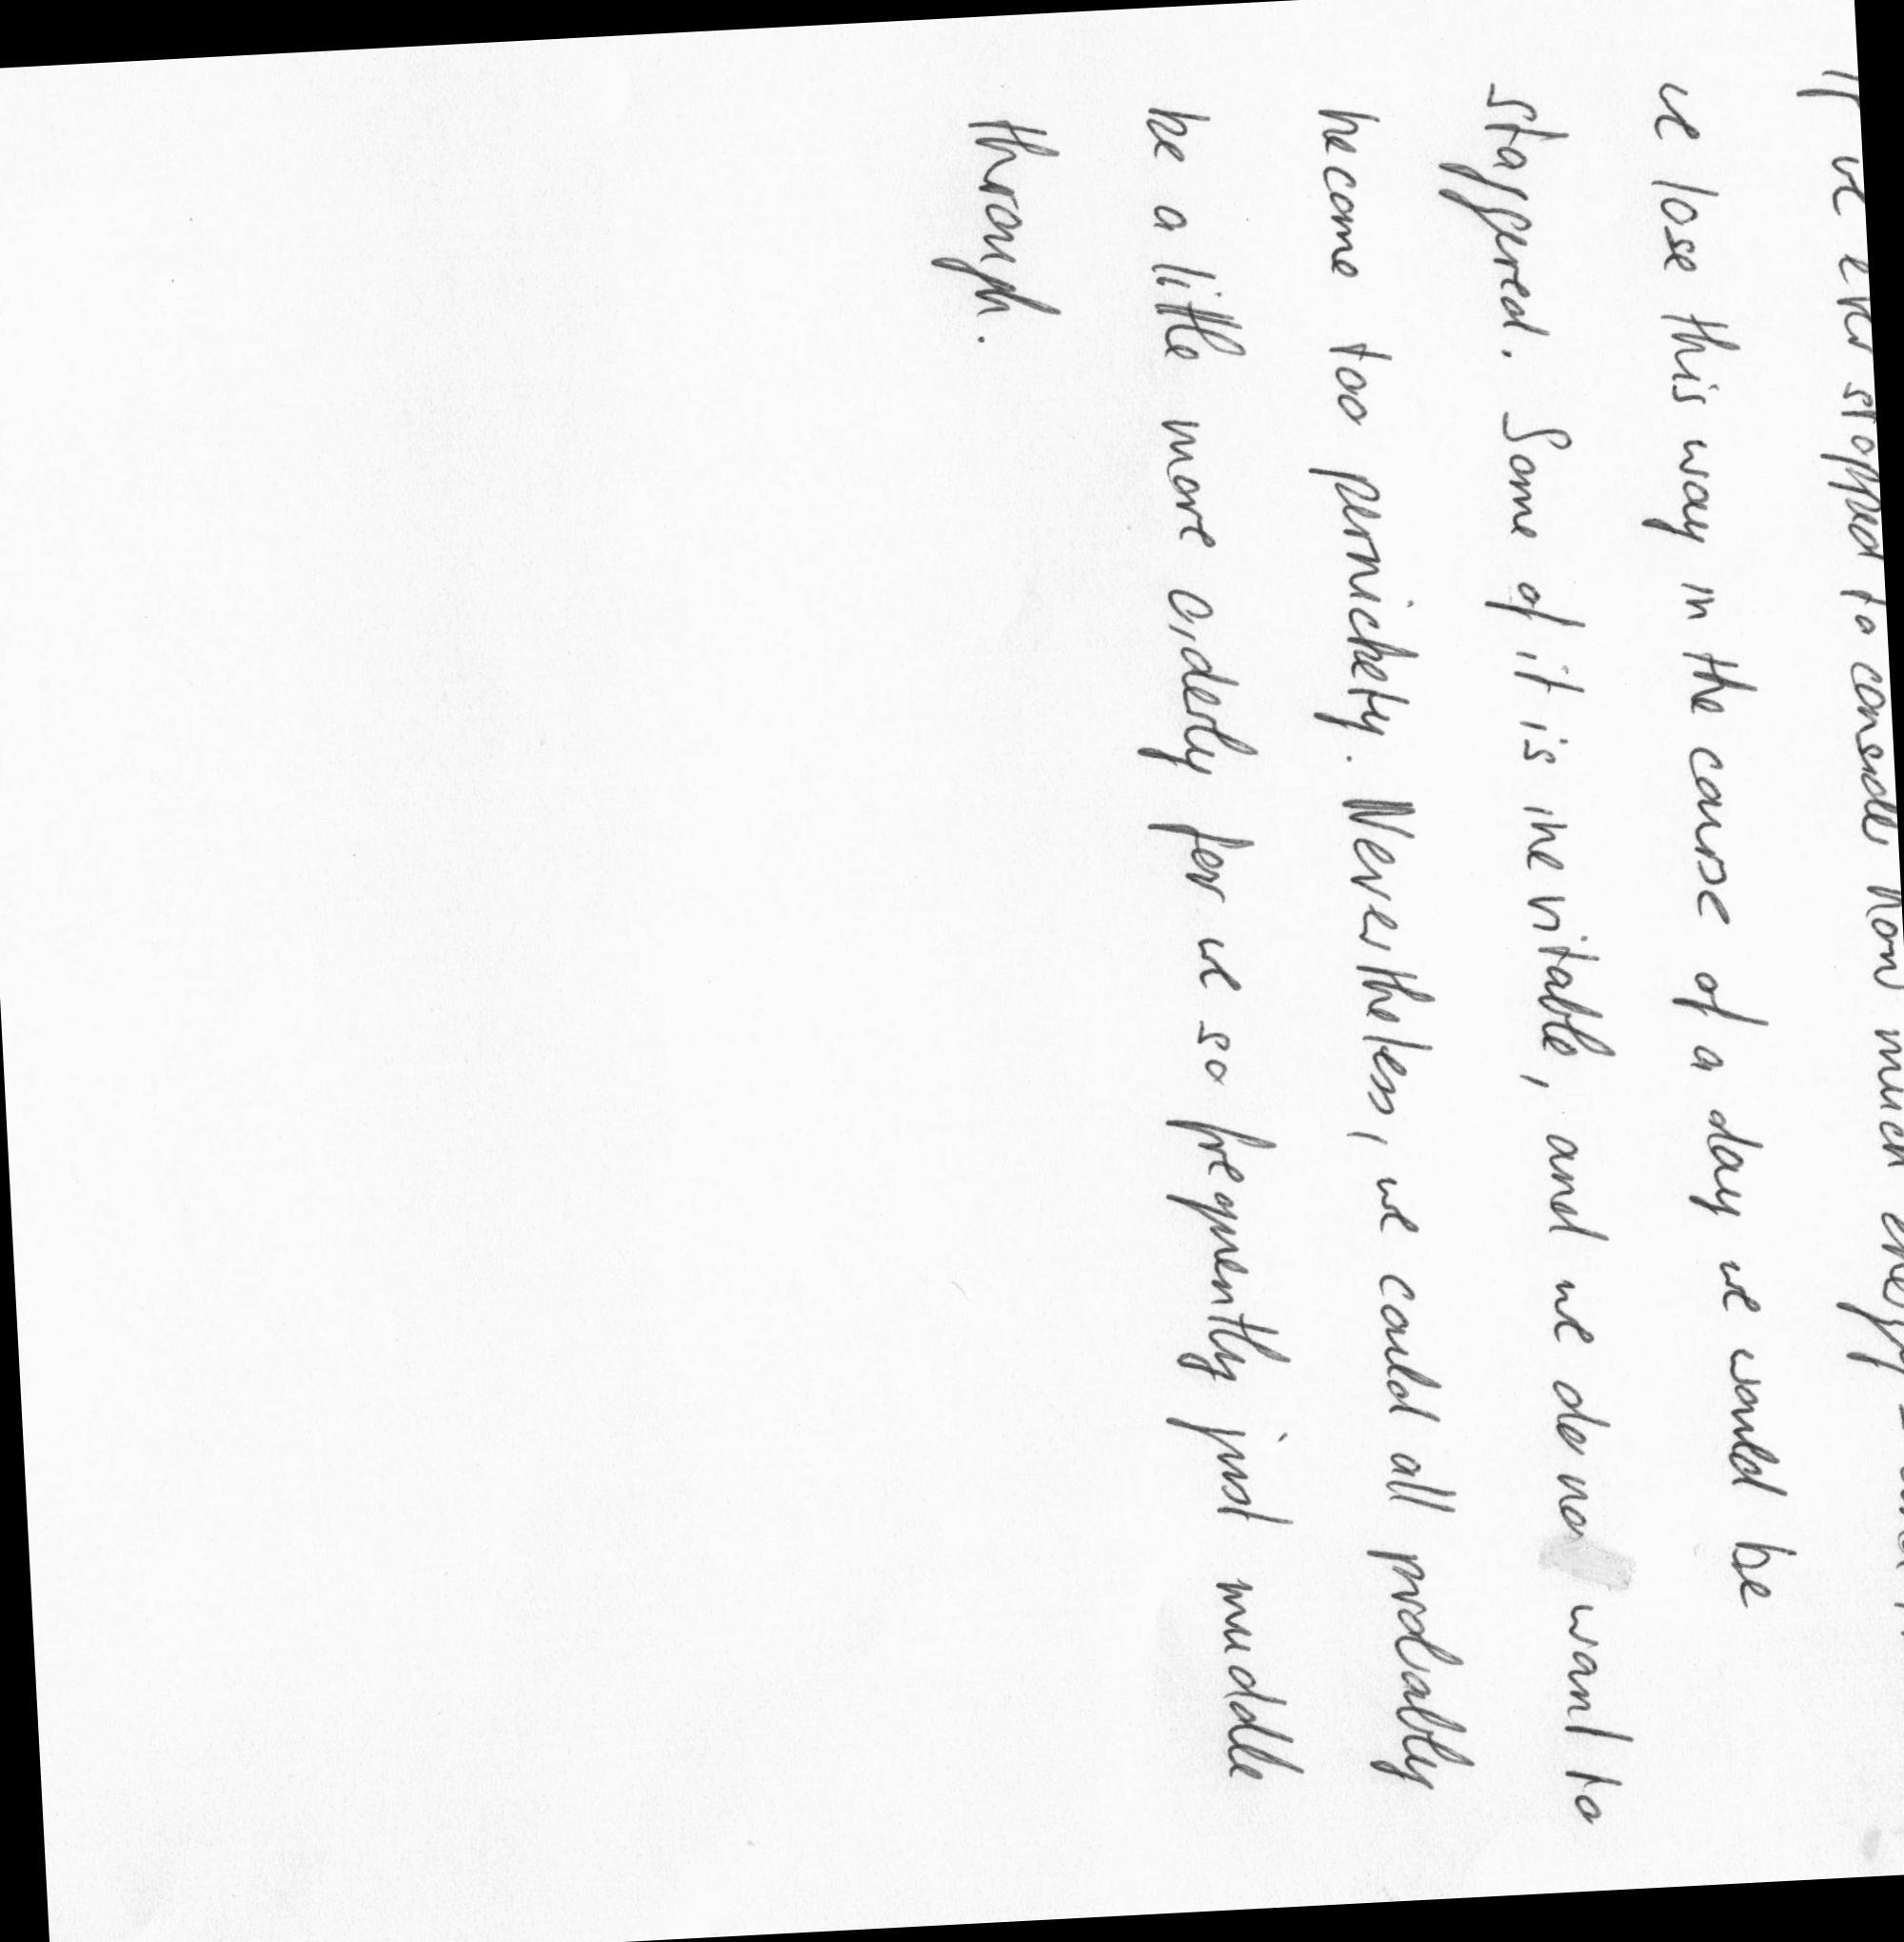 If we ever stopped to consider how much energy -
we lose this way in the course of a day we would be
staggered. Some of it is inevitable, and we do no want to
become too pernickety. Nevertheless, we could all probably
be a little more orderly for we so frequently just muddle
through.